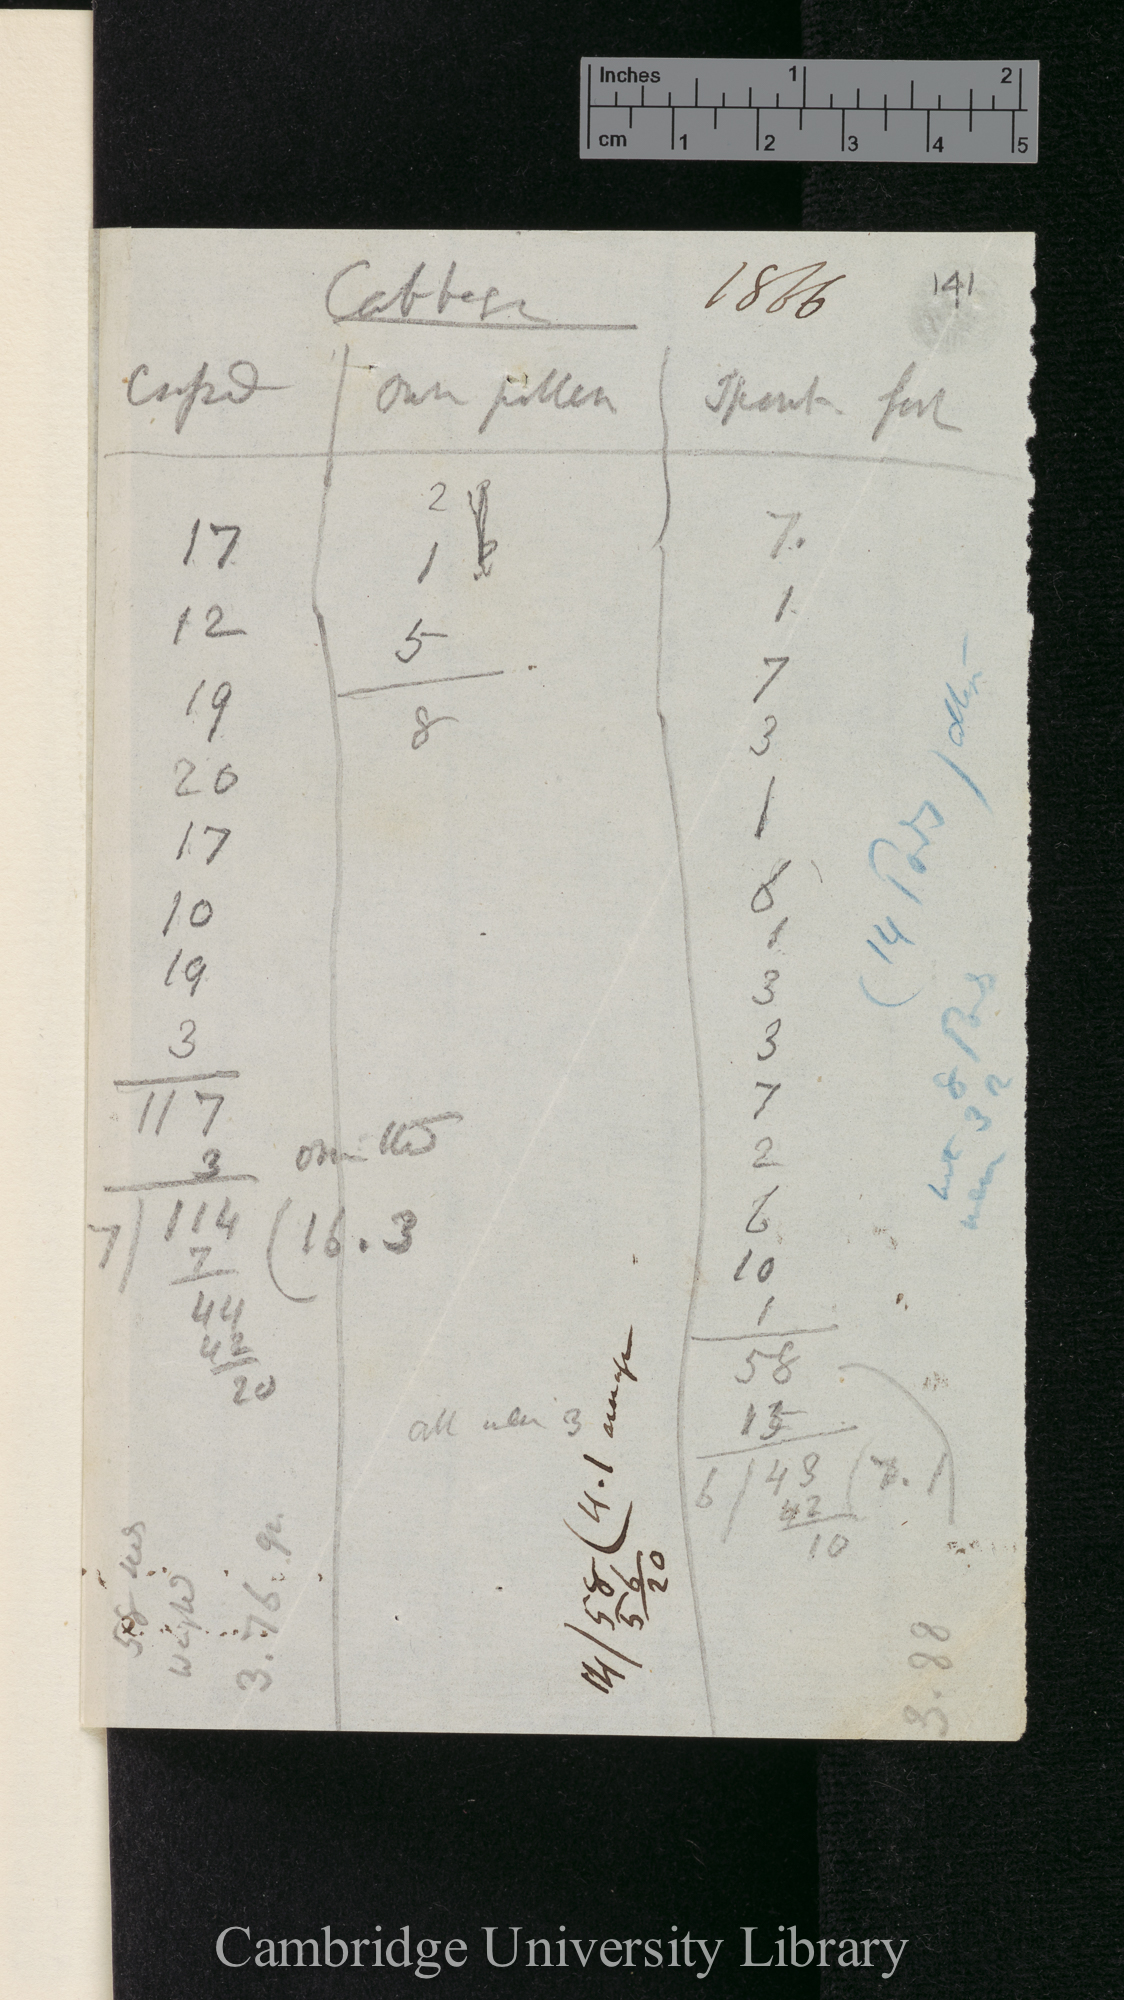 Inches 1 2
cm 1 2 3 4 5
Cabbage 1866 141
Crossed own pollen Spont fert
17
12
19
20
17
10
19
3
117
3 omitted
7) 114 (16.3
7
44
42
20
2
1
5
8
7.
1
7
3
1
8
1
3
3
7
2
6
10
1
58
15
6) 43 (7.1
42
10
all under 3
14) 58 (4.1 average
56
20
58
weighed
3.76. gr.
(14 Pods
8 Pods
under 3
3.88
Cambridge University Library